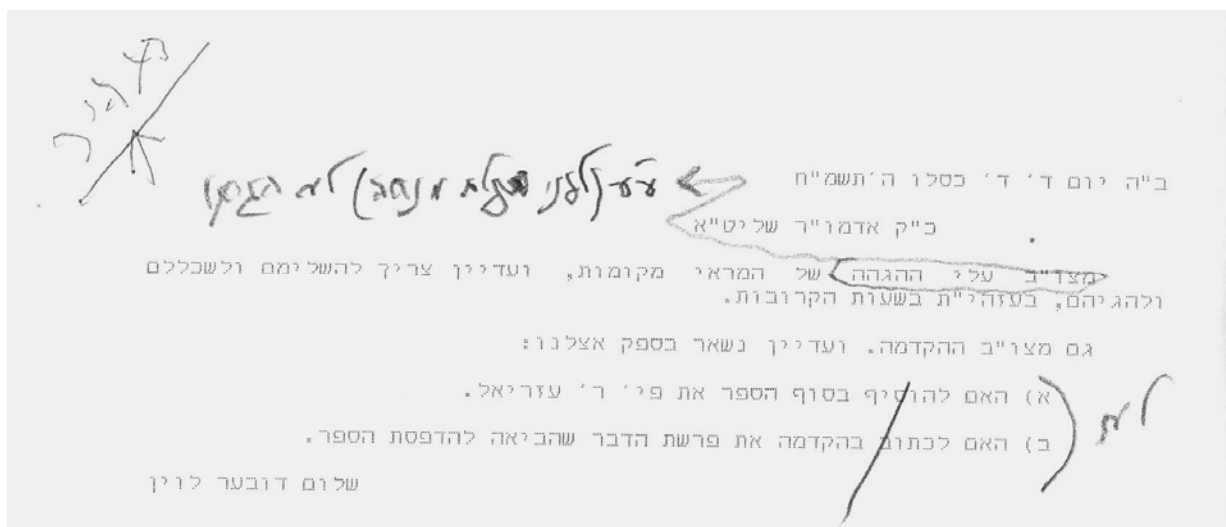 ב"ה יום ד' ד' כסלו ה'תשמ"ח
כ"ק אדמו"ר שליט"א
מצו"ב עלי ההגהה של המראי מקומות, ועדיין צריך להשלימם ולשכללם
ולהגיהם, בעזהי"ת בשעות הקרובות.
גם מצו"ב ההקדמה. ועדיין נשאר בספק אצלנו:
א) האם להוסיף בסוף הספר את פי' ר' עזריאל.
ב) האם לכתוב בהקדמה את פרשת הדבר שהביאה להדפסת הספר.
שלום דובער לוין